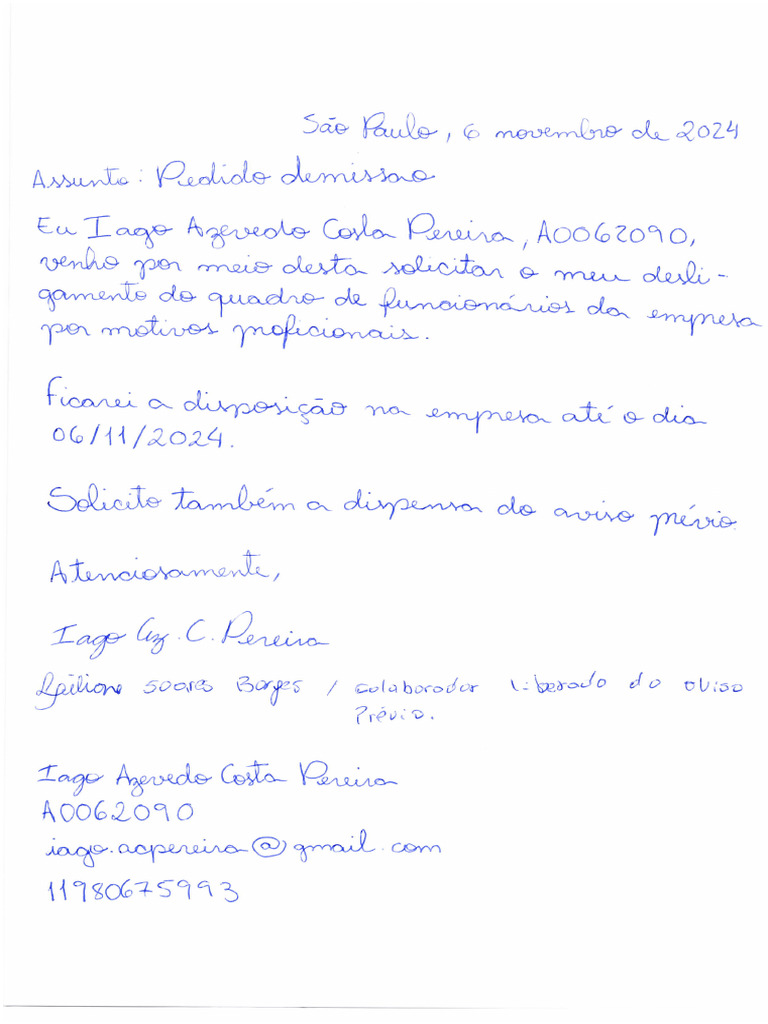 São Paulo, 6 novembro de 2024
Assunto: Pedido demissao
Eu Iago Azevedo Costa Pereira, A0062090,
venho por meio desta solicitar o meu desli-
gamento do quadro de funcionários da empresa
por motivos proficionais.
Ficarei a disposição na empresa até o dia
06/11/2024.
Solicito também a dispensa do aviso prévio.
Atenciosamente,
Iago Az. C. Pereira
Soares Borges / colaborador liberado do aviso
Prévio.
Iago Azevedo Costa Pereira
A0062090
iago.acpereira@gmail.com
11980675993